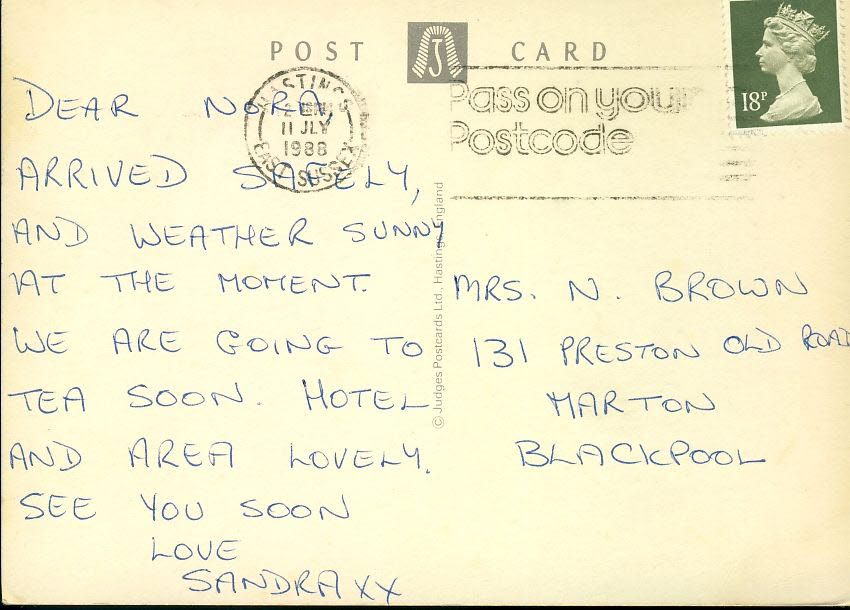 POST CARD
18P
HASTINGS
11 JLY
1988
EAST SUSSEX
Pass on your
Postcode
DEAR NORA,
ARRIVED SAFELY,
AND WEATHER SUNNY
AT THE MOMENT.
WE ARE GOING TO
TEA SOON. HOTEL
AND AREA LOVELY.
SEE YOU SOON
LOVE
SANDRA XX
© Judges Postcards Ltd., Hastings, England
MRS. N. BROWN
131 PRESTON OLD ROAD
MARTON
BLACKPOOL